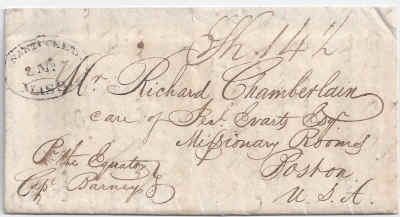 NANTUCKET
MS.
Sh. 14½
Mr Richard Chamberlain
care of Jer. Evarts Esqr
Missionary Rooms
Boston
U.S.A.
Pr the Equator
Capt Barney